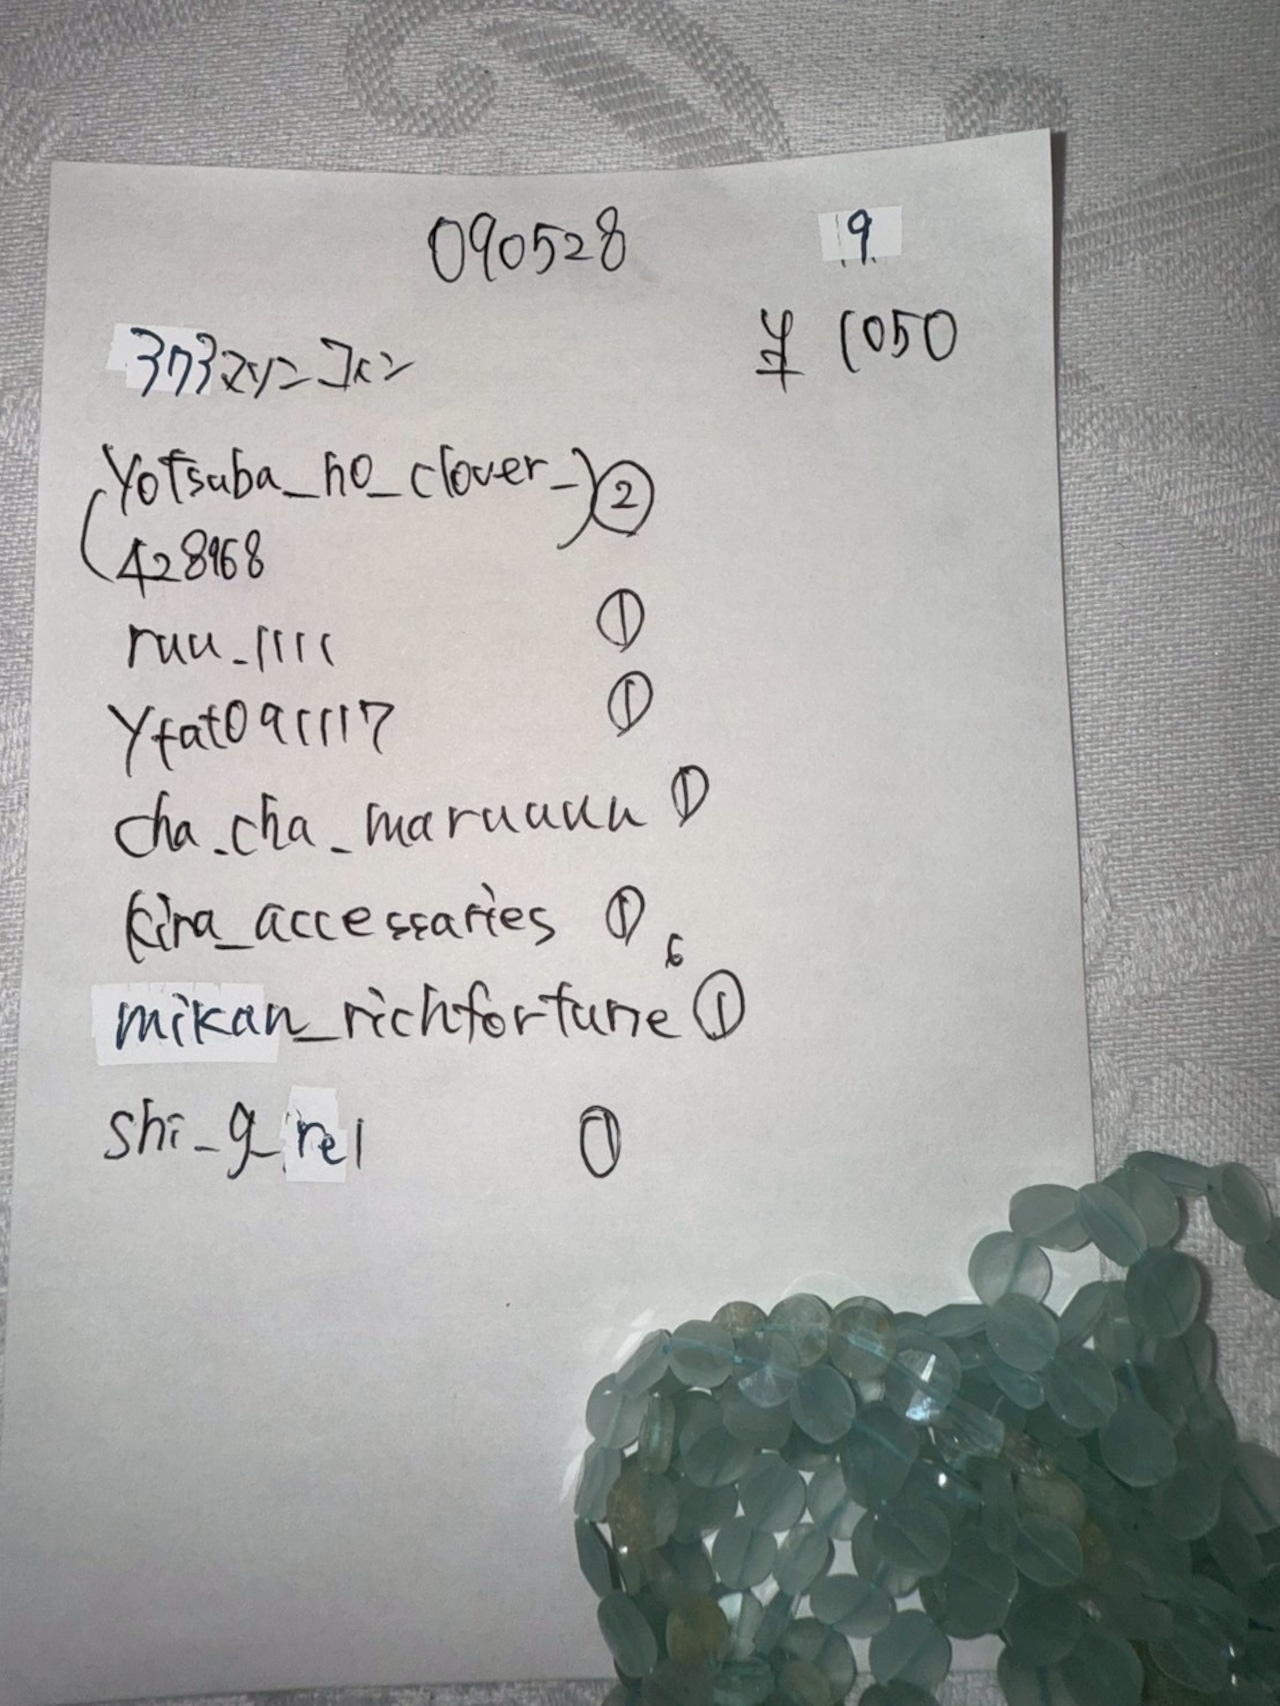 090528 9
アクアマリンコイン ¥1050
(yotsuba_no_clover_) ②
428968
ruu_1111 ①
yfat091117 ①
cha.cha_maruuuu ①
kira_accessaries ①
6
mikan_richfortune ①
shi_g_rel ①